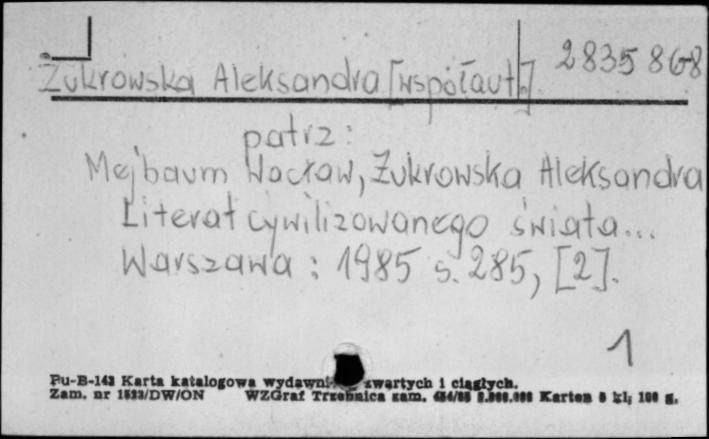 2835868
Żukrowska Aleksandra [współaut.]
patrz:
Mejbaum Wacław, Żukrowska Aleksandra
Literat cywilizowanego świata...
Warszawa : 1985 s. 285, [2].
1
Pu-B-143 Karta katalogowa zwartych i ciągłych.
Zam. nr 1523/DW/ON WZGraf Trzebnica zam. Karton kl. 180 g.